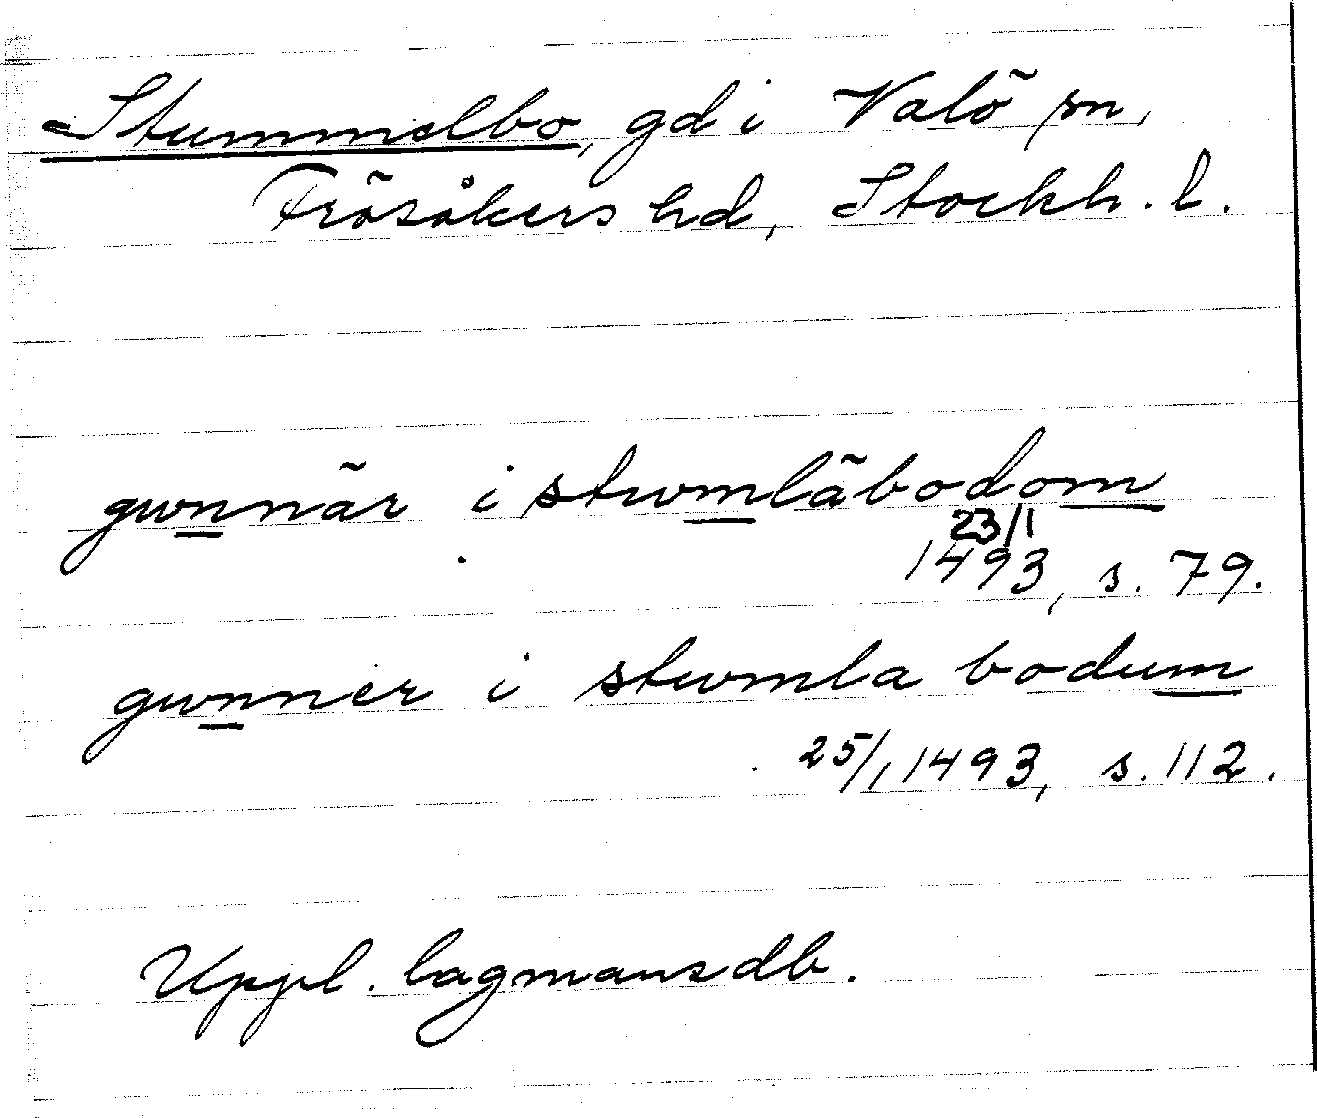 Stummelbo, gd i Valö sn,
Frösåkers hd, Stockh. l.
gwnnär i stwmläbodom
23/1
1493, s. 79.
gwnner i stwmla bodum
25/1 1493, s. 112.
Uppl. lagmansdb.